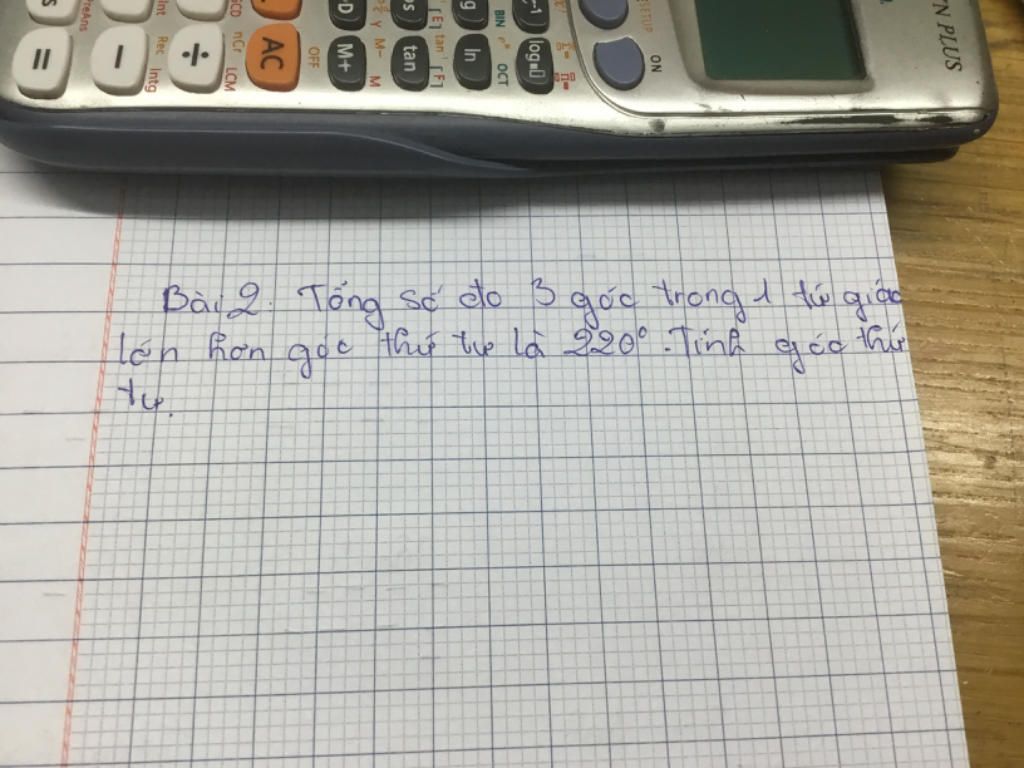 N PLUS
= − ÷ AC M+ tan ln
PreAns Rec Intg nCr LCM OFF M- M OCT BIN ON
Bài 2. Tổng số đo 3 góc trong 1 tứ giác
lớn hơn góc thứ tư là 220°. Tính góc thứ
tư.